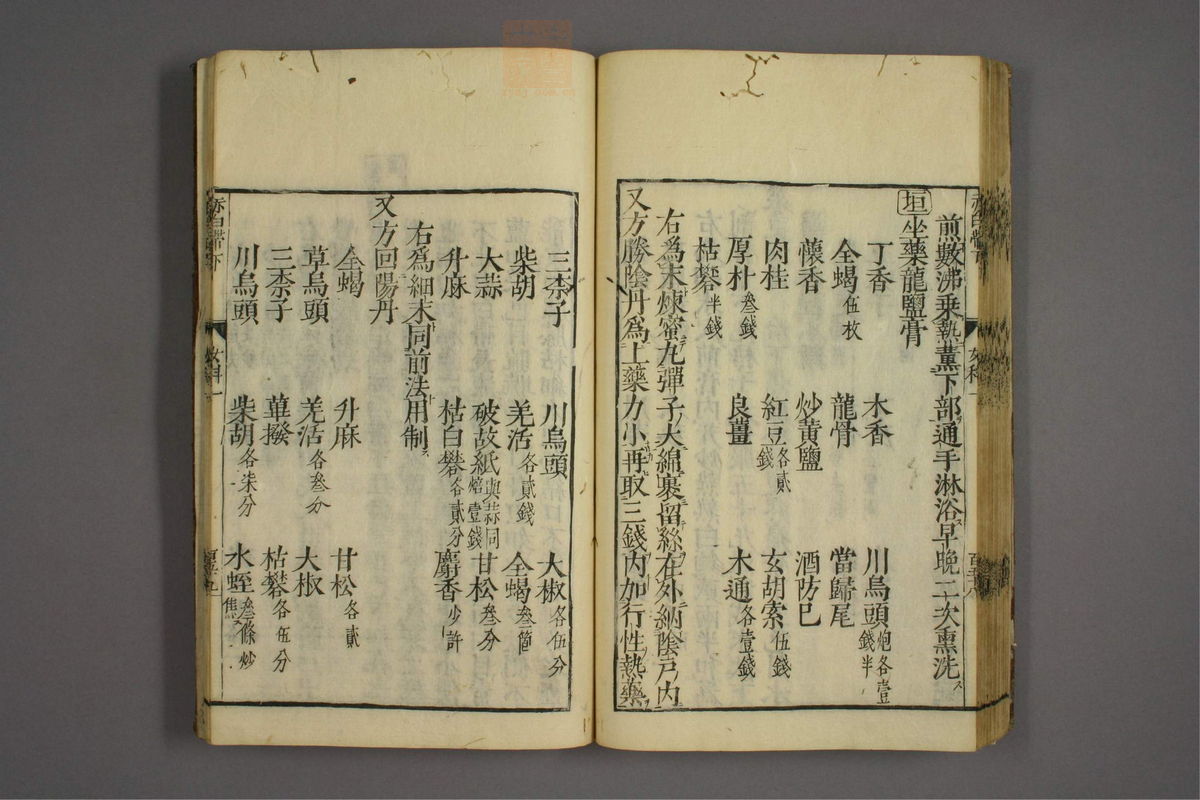 前數沸乘熱薰下部通手淋浴早晚二次熏洗
垣坐藥龍鹽膏
丁香 木香 川烏頭炮各壹錢半
全蝎伍枚 龍骨 當歸尾
懷香 炒黃鹽 酒防巳
肉桂 紅豆各貳錢 玄胡索伍錢
厚朴叁錢 良薑 木通各壹錢
枯礬半錢
右爲末煉蜜丸彈子大綿裹留絲在外納陰戶內
又方勝陰丹爲上藥力小再取三錢內加行性熱藥
三柰子 川烏頭 大椒各伍分
柴胡 羌活各貳錢 全蝎叁箇
大蒜 破故紙與蒜同焙壹錢 甘松叁分
升麻 枯白礬各貳分 麝香少許
右爲細末同前法用制
又方回陽丹
全蝎 升麻 甘松各貳
草烏頭 羌活各叁分 大椒
三柰子 蓽撥 枯礬各伍分
川烏頭 柴胡各柒分 水蛭叁條炒焦
赤白帶下 女科一